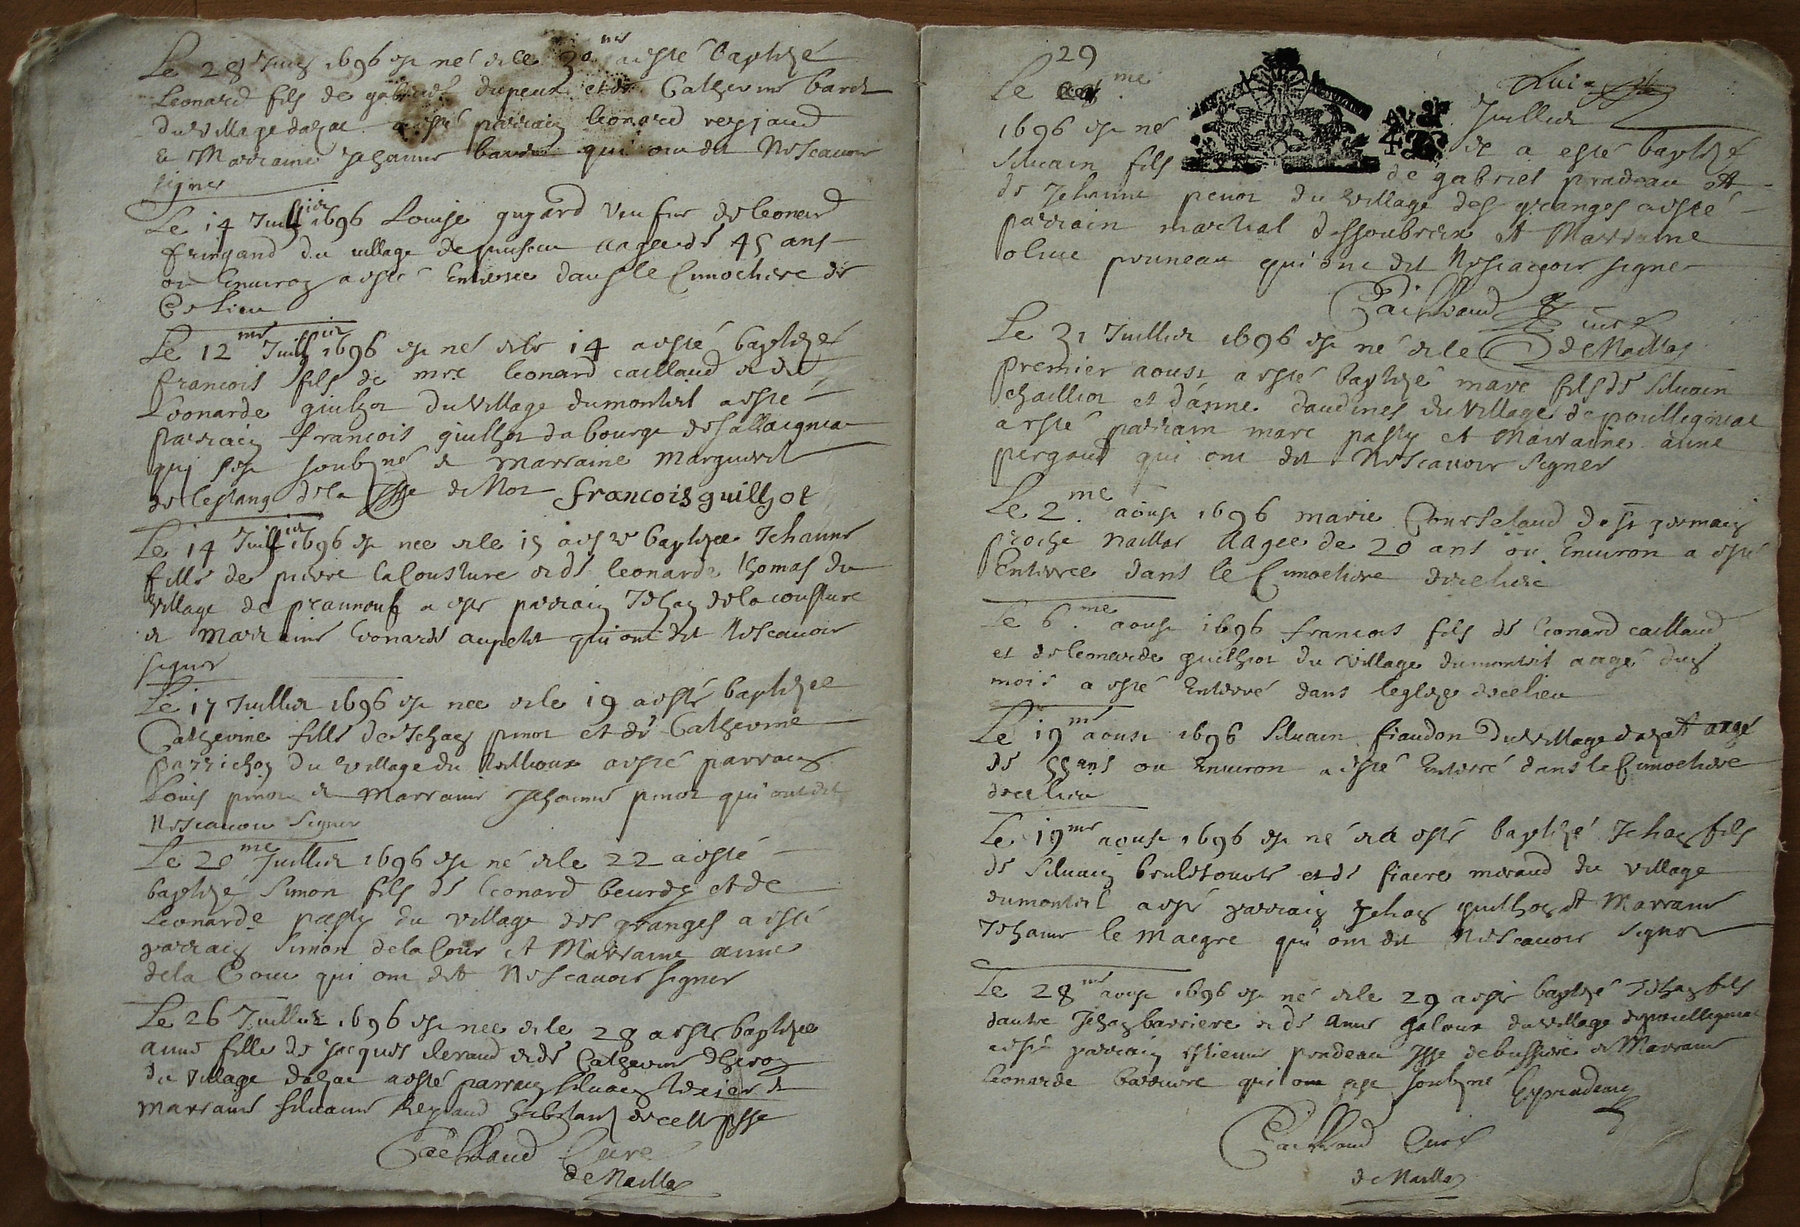 Le 28 Juin 1696 est né et le 30me a esté baptizé
Leonard fils de gabriel dupeux et de Catherine bard
du village dazat a esté parrain leonard reyjaud
& Marraine Jehanne qui ont dit Nescavoir
signer
Le 14 Juillier 1696 Louise guyard veufve de leonard
fringand du village de aagee de 45 ans
ou Environ a esté Enterree dans le Cimechiere de
Ce lieu
Le 12me Juillier 1696 est né et le 14 a esté baptizé
francois fils de mre leonard caillaud et de
Leonarde guilhot du village dumonteil a esté
parrain francois guilhot du bourg de sallaignac
qui sest soubzné & marraine Marguerite
de lestang dela psse de Not francois guilhot
Le 14 Juillier 1696 est nee et le 15 a este baptizee Jehanne
fille de pierre lacousture et de leonarde thomas du
village de a este parrain Jehan delacousture
& Marraine leonarde aupetit qui ont dit Nescavoir
signer
Le 17 Juillier 1696 est nee et le 19 a esté baptizee
Catherine fille de Jehan pinot et de Catherine
parrichon du village du a esté parrain
Louis pinot & Marraine Jehanne pinot qui ont dit
Nescavoir signer
Le 20me Juillier 1696 est né et le 22 a esté
baptizé Simon fils de leonard beurdy et de
Leonarde pasty du village des granges a esté
parrain Simon delaCour et Marraine anne
dela Cour qui ont dit Nescavoir signer
Le 26 Juillier 1696 est nee et le 28 a esté baptizee
anne fille de Jacques leraud et de Catherine
du village dazat a esté parrain silvain texier &
marraine silvaine Reyjaud habitans de cette psse
Caillaud Curé
de Naillat
29
Le me Juillier
1696 est né et a esté baptizé
Silvain fils de gabriel pradeau et
de Jehanne pinot du village des granges a esté
parrain martial dessoubrier et Marraine
olive pruneau qui ont dit Nescavoir signer
Caillaud curé
de Naillat
Le 31 Juillier 1696 est né et le
premier aoust a esté baptizé marc fils de silvain
chailliot et danne daudines du village de poulligniat
a esté parrain marc pasty et Marraine anne
pergaud qui ont dit Nescavoir signer
Le 2me aoust 1696 marie Courselaud de st germain
proche Naillat aagee de 20 ans ou Environ a esté
Enterree dans le Cimechiere de ce lieu
Le 6me aoust 1696 francois fils de leonard caillaud
et de leonarde guilhot du village dumonteil aagé dun
mois a esté Enterré dans leglize de ce lieu
Le 19me aoust 1696 Silvain fiaudon du village dazat aagé
de 55 ans ou Environ a esté Enterré dans le Cimechiere
de ce lieu
Le 19me aoust 1696 est né et a esté baptizé Jehan fils
de Silvain bruletourte et de fiacre meraud du village
dumonteil a esté parrain Jehan guilhot et Marraine
Jehanne le maigre qui ont dit Nescavoir signer
Le 28me aoust 1696 est né et le 29 a esté baptizé Jehan fils
dautre Jehan barriere et de anne galoux du village de poulligniat
a esté parrain estienne pradeau psse debussiere & Marraine
leonarde barriere qui soubzné Epradeau
Caillaud Curé
de Naillat